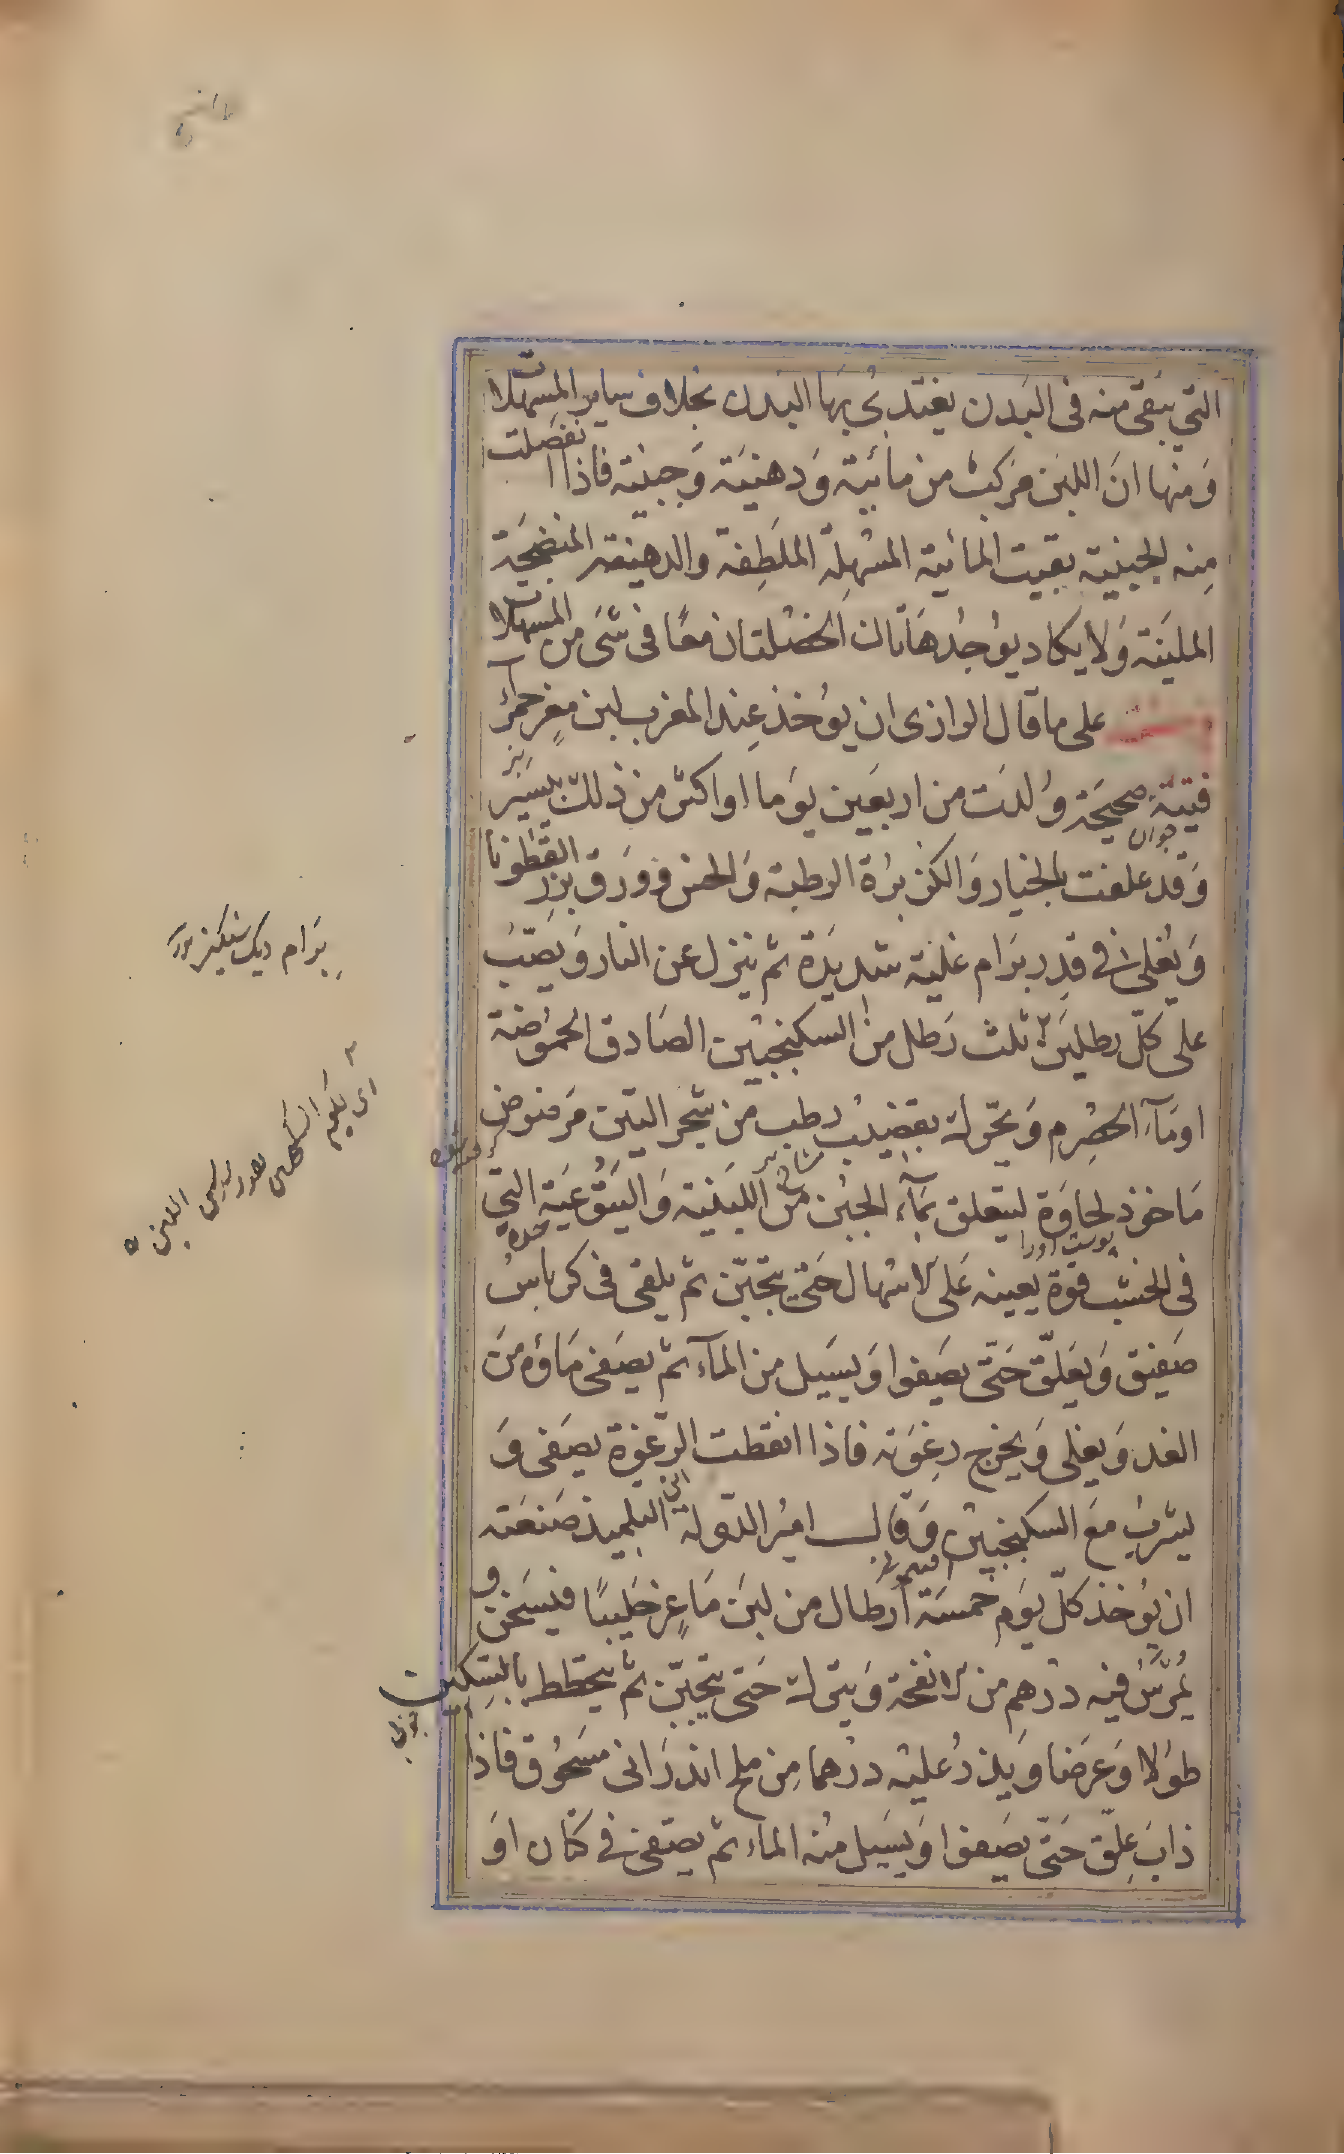 التي تبقى منه فى البدن يغتدى بها البدن بخلاف ساير المسهلات
وَمنها انَ اللبَن مَركبٌ من مائية وَدهنيَة وَجبنية فاذا انفصَلت
مِنه الجبنية بقيت المائية المسْهِلة الملَطِفة والدهنية المنضجَة
المليَنة وَلا يكاد يوُجدُ هَاتان الخصْلتان معًا فى شَى من المسهلات
على ما قال الرازى ان يوُخذ عِند المغرب لبن معزٍ حمرآء
فتيَّةٍ صحيحَة وُلدَت من اربعَين يوَما او اكثر من ذلك بيَسير
جوان
وَقد علفت بالخيار وَالكزبرَة الرطبة وَالخس وورَق بزر القطونا
وَيُغلى فى قِدر برَام غلية شديَدة ثم ينزل عن النار وَيصَبُ
على كلّ رطليَن ثلث رَطل من السكنجبيْن الصَادق الحموُضة
او مَآء الحصْرم وَيحّرك بقضيْب رطب من شجر التيْن مَرضوض
مَاخوذ لحاوَه ليتعلق بمآء الجبْن من اللبَنية وَاليَتُوعيَة التي
پوست اورا
فى الخشب قوة يعينه عَلى الاسْهال حَتى يتجبّن ثم يلقى فى كرباسٌ
صَفيق وَيعَلّق حَتّى يصَفوا وَيسَيل من المآء ثم يصَفى مَاؤه مَن
الغد وَيغلى وَيخرج رِغوَته فاذا انقطت الرّغوة يصَفى وَ
يشربُ مَعَ السكنجبيْن وَقال اميْر الدّولة ابن التلميذ صَنعَته
ان يوُخذ كلّ يوَم خمسَة اَرطال من لبَن مَاعِز حَليبًا فيسَخن و
يُمرّسُ فيه درْهم من الانفحة وَيترك حَتى يتجبّن ثم يخطط بالسّكين
طوُلا وَعرَضا وَيذرُ عليْه درْهما مِن ملح اندرَانى مسَحوُق فاذا
ذابَ عِلّق حَتّى يصَفوا وَيسَيل منْه الماء ثم يصَفى في كتّان اوَ
بَرام ديك سنكين
اى
اللبن